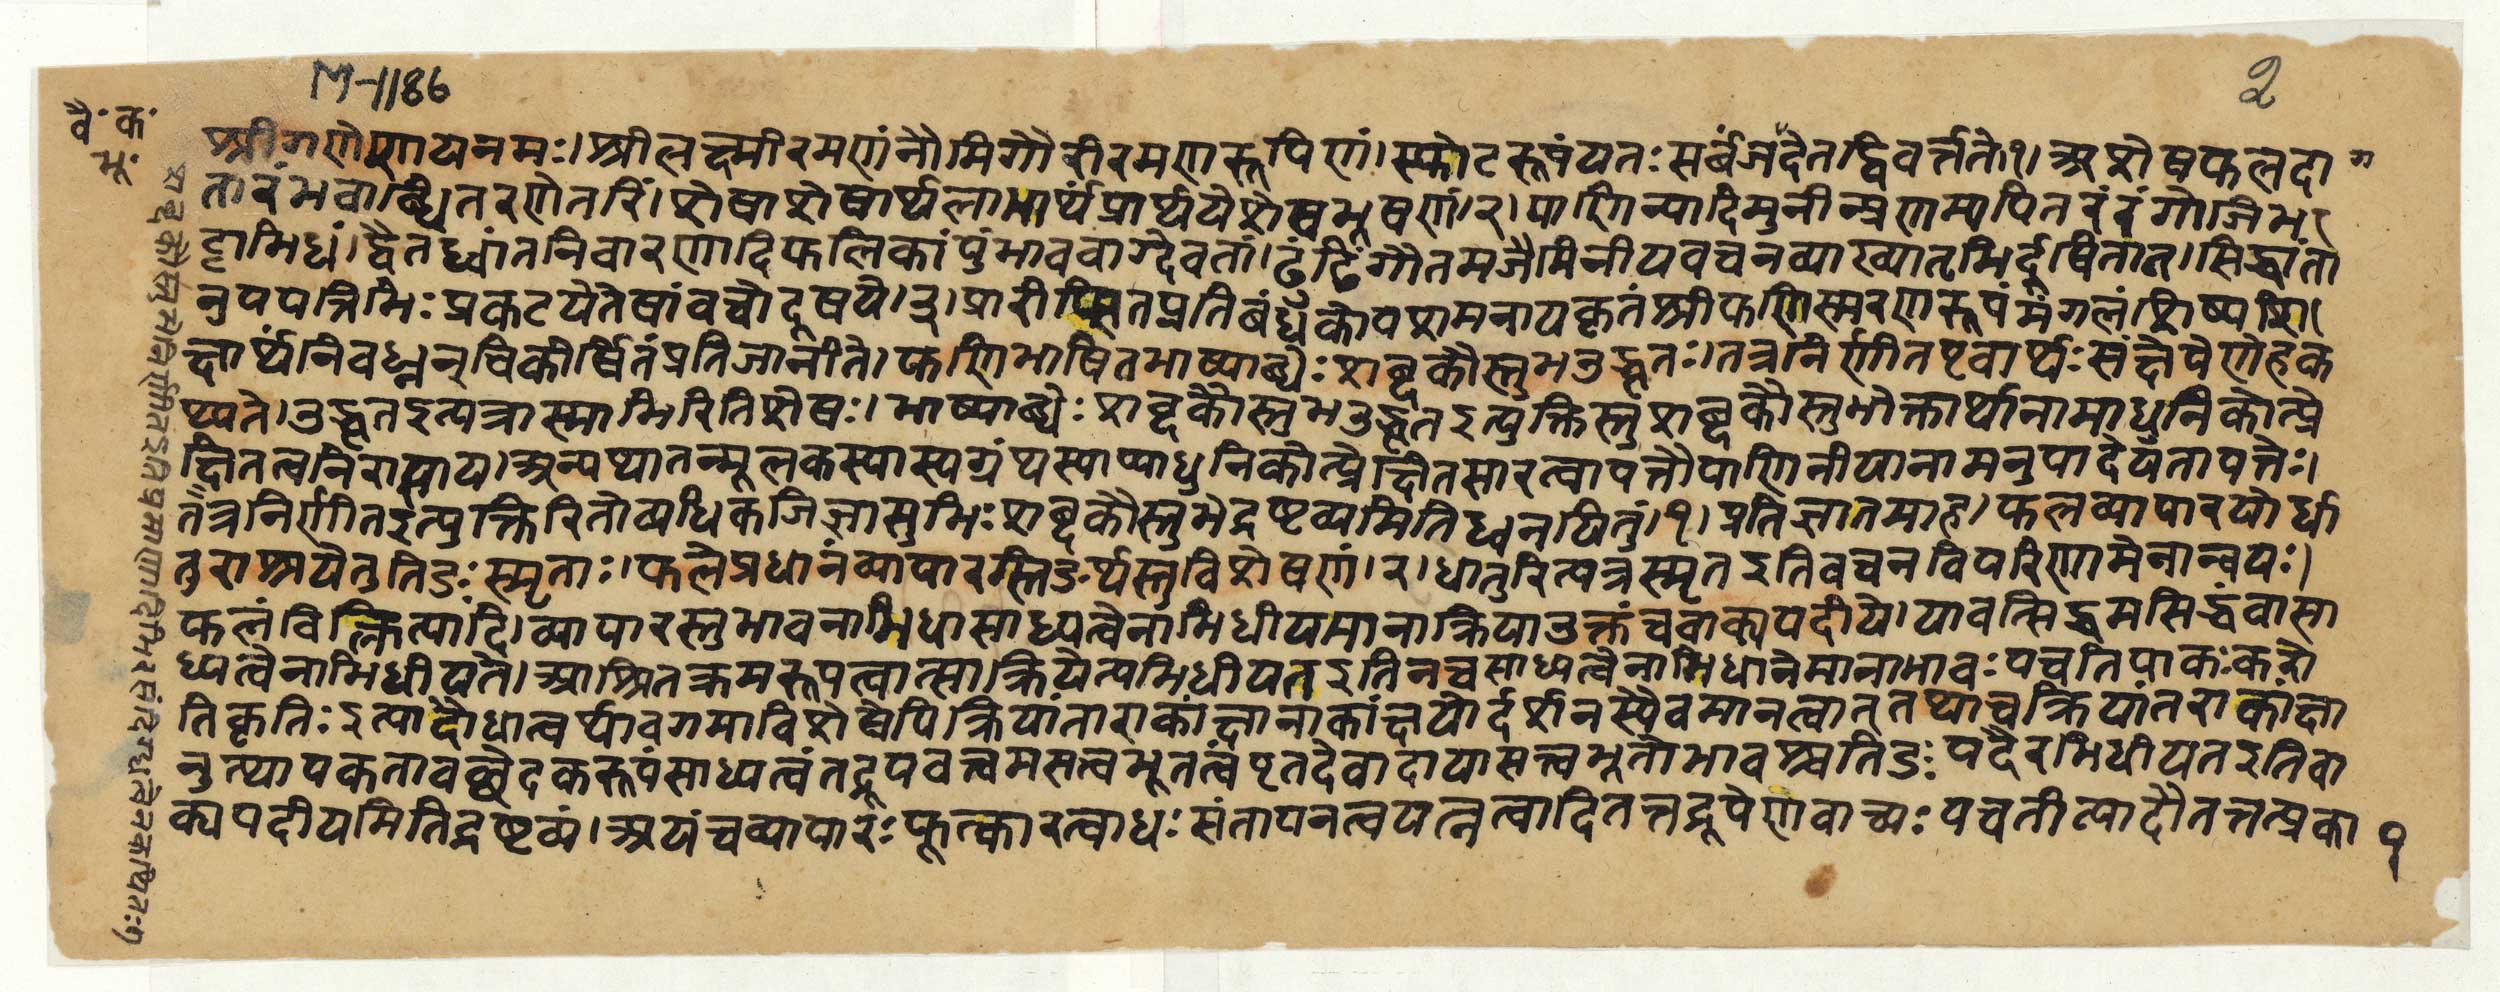 M-1186
2
वै. क.
भूं
श्रीगणेशायनमः। श्रीलक्ष्मीरमणंनौमिगौरीरमणरूपिणं। स्फोटरूपंयतःसर्बंजगदेतद्विवर्त्तते१। अशेषफलदा
तारंभवाब्धितरणेतरिं। शेषाशेषार्थलाभार्थंप्रार्थयेशेषभूषणं।२। पाणिन्यादिमुनीन्प्रणम्यपितरंरंगोजिभ
ट्टाभिधं। द्वैतध्वांतनिवारणादिफलिकांपुंभाववाग्देवतां। ढुंढिंगौतमजैमिनीयवचनव्याख्यातृभिर्दूषितात्। सिद्धांता
नुपपत्तिभिःप्रकटयेतेषांवचोदूषये।३। प्रारीप्सितप्रतिबंधकोपशमनायकृतंश्रीफणिस्मरणरूपंमंगलंशिष्यशि
क्षार्थंनिवध्नन्चिकीर्षितंप्रतिजानीते। फणिभाषितभाष्याब्धेःशब्दकौस्तुभउद्धृतः। तत्रनिर्णीतएवार्थःसंक्षेपेणेहक
थ्यते। उद्धृतइत्यत्रास्माभिरितिशेषः। भाष्याब्धेःशब्दकौस्तुभउद्धृतइत्युक्तिस्तुशब्दकौस्तुभोक्तार्थानामाधुनिकोत्प्रे
क्षितत्वनिरासाय। अन्यथातन्मूलकस्यास्यग्रंथस्याप्याधुनिकोत्प्रेक्षितसारत्वापत्तौपाणिनीयानामनुपादेयतापत्तेः।
तत्रनिर्णीतइत्युक्तिरितोप्यधिकजिज्ञासुभिःशब्दकौस्तुभेद्रष्टव्यमितिध्वनयितुं।१। प्रतिज्ञातमाह। फलव्यापारयोर्धा
तुराश्रयेतुतिङःस्मृताः। फलेप्रधानंव्यापारस्तिङर्थस्तुविशेषणं।२। धातुरित्यत्रस्मृतइतिवचनविपरिणामेनान्वयः।
फलंविक्लित्यादि। व्यापारस्तुभावनाभिधासाध्यत्वेनाभिधीयमानाक्रियाउक्तंचवाक्यपदीये। यावत्सिद्धमसिद्धंवासा
ध्यत्वेनाभिधीयते। आश्रितक्रमरूपत्वात्साक्रियेत्यभिधीयतइतिनचसाध्यत्वेनाभिधानेमानाभावःपचतिपाकःकरो
तिकृतिःइत्यादौधात्वर्थावगमाविशेषेपिक्रियांतराकांक्षानाकांक्षयोर्दर्शनस्यैवमानत्वात्तथाचक्रियांतराकांक्षा
नुत्थापकतावच्छेदकरूपंसाध्यत्वंतद्रूपवत्त्वमसत्वभूतत्वंएतदेवादायासत्त्वभूतोभावश्चतिङःपदैरभिधीयतइतिवा
क्यपदीयमितिद्रष्टव्यं। अयंचव्यापारःफूत्कारत्वाधःसंतापनत्वयत्नत्वादितत्तद्रूपेणवाच्यःपचतीत्यादौतत्तत्प्रका
१